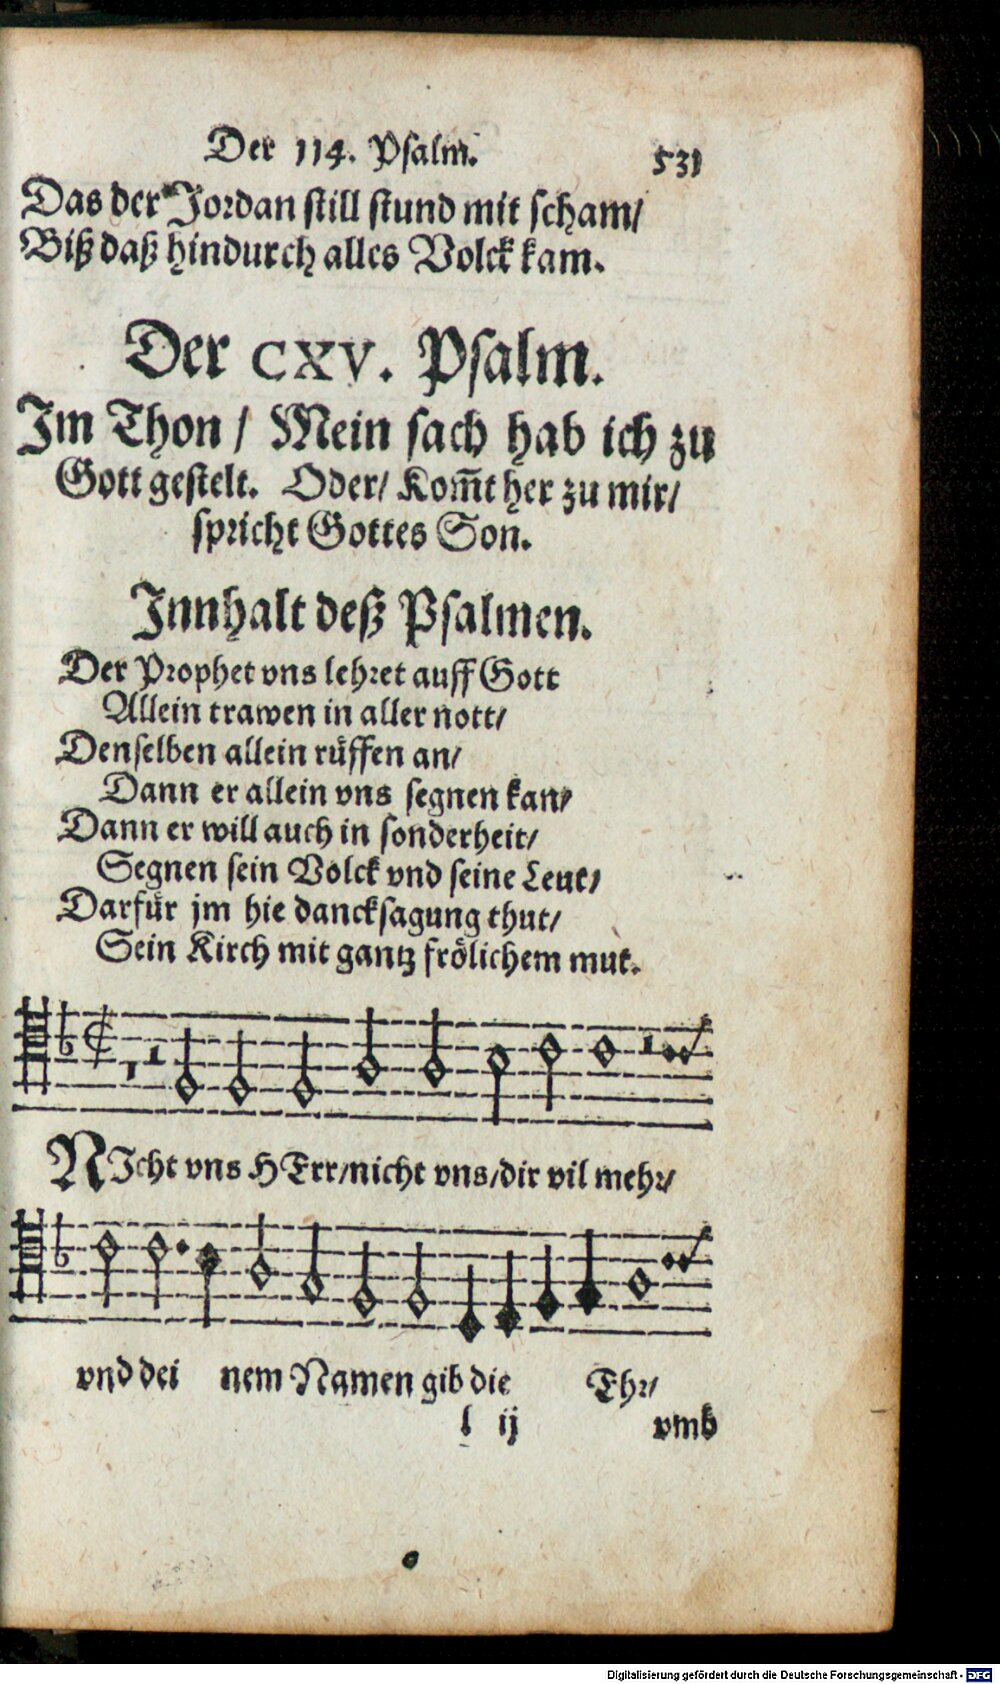 Der 114. Psalm. 531
Das der Jordan still stund mit scham/
Biß daß hindurch alles Volck kam.
Der CXV. Psalm.
Im Thon / Mein sach hab ich zu
Gott gestelt. Oder/ Kom̃t her zu mir/
spricht Gottes Son.
Innhalt deß Psalmen.
Der Prophet vns lehret auff Gott
Allein trawen in aller nott/
Denselben allein rüffen an/
Dann er allein vns segnen kan/
Dann er will auch in sonderheit/
Segnen sein Volck vnd seine Leut/
Darfür jm hie dancksagung thut/
Sein Kirch mit gantz frölichem mut.
NIcht vns HErr/nicht vns/dir vil mehr/
vnd dei nem Namen gib die Ehr/
l ij vmb
Digitalisierung gefördert durch die Deutsche Forschungsgemeinschaft - DFG